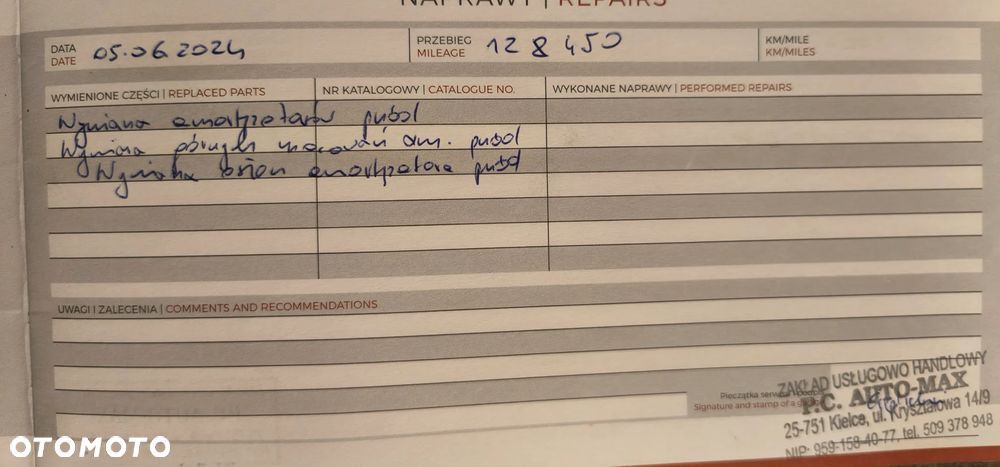 NAPRAWY | REPAIRS
DATA 05.06 2024 PRZEBIEG 128 450 KM/MILE
DATE MILEAGE KM/MILES
WYMIENIONE CZĘŚCI | REPLACED PARTS NR KATALOGOWY | CATALOGUE NO. WYKONANE NAPRAWY | PERFORMED REPAIRS
Wymiana amortyzatorów przód
Wymiana górnych mocowań am. przód
Wymiana osłon amortyzatora przód
UWAGI I ZALECENIA | COMMENTS AND RECOMMENDATIONS
Pieczątka
Signature and stamp of a
ZAKŁAD USŁUGOWO HANDLOWY
P.C. AUTO-MAX
25-751 Kielce, ul. Kryształowa 14/9
NIP: 959-158-40-77, tel. 509 378 948
OTOMOTO